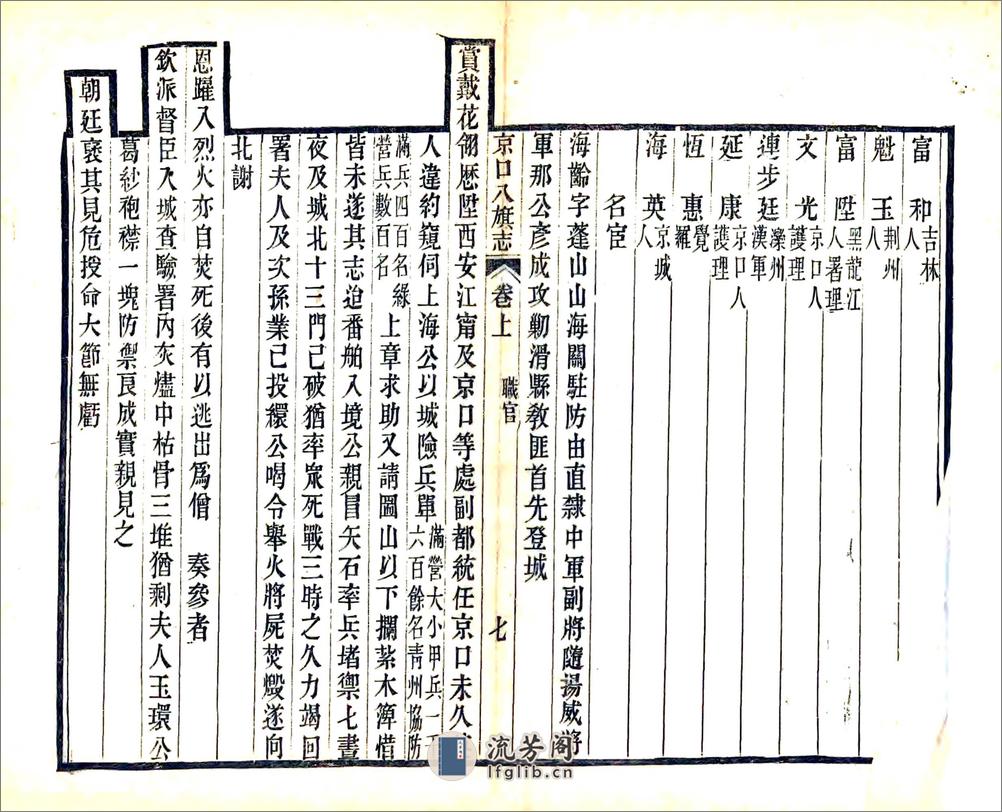 富和吉林人
魁玉荆州人
富陞黑龍江人署理
文光京口人護理
連步廷灤州漢軍
延康京口人護理
恆惠覺羅
海英京城人
名宦
海齡字蓬山山海關駐防由直隸中軍副將隨揚威將
軍那公彥成攻勦滑縣教匪首先登城
京口八旗志 卷上 職官 七
賞戴花翎歷陞西安江甯及京口等處副都統任京口未久
人違約窺伺上海公以城險兵單滿營大小甲兵一千六百餘名靑州協防
滿兵四百名綠營兵數百名上章求助又請圌山以下攔紮木簰惜
皆未遂其志迨番舶入境公親冒矢石率兵堵禦七晝
夜及城北十三門已破猶率眾死戰三時之久力竭回
署夫人及次孫業已投繯公喝令舉火將屍焚燬遂向
北謝
恩躍入烈火亦自焚死後有以逃出爲僧 奏參者
欽派督臣入城查驗署內灰燼中枯骨三堆猶剩夫人玉環公
葛紗袍襟一塊防禦良成實親見之
朝廷褒其見危授命大節無虧
流芳阁
lfglib.cn